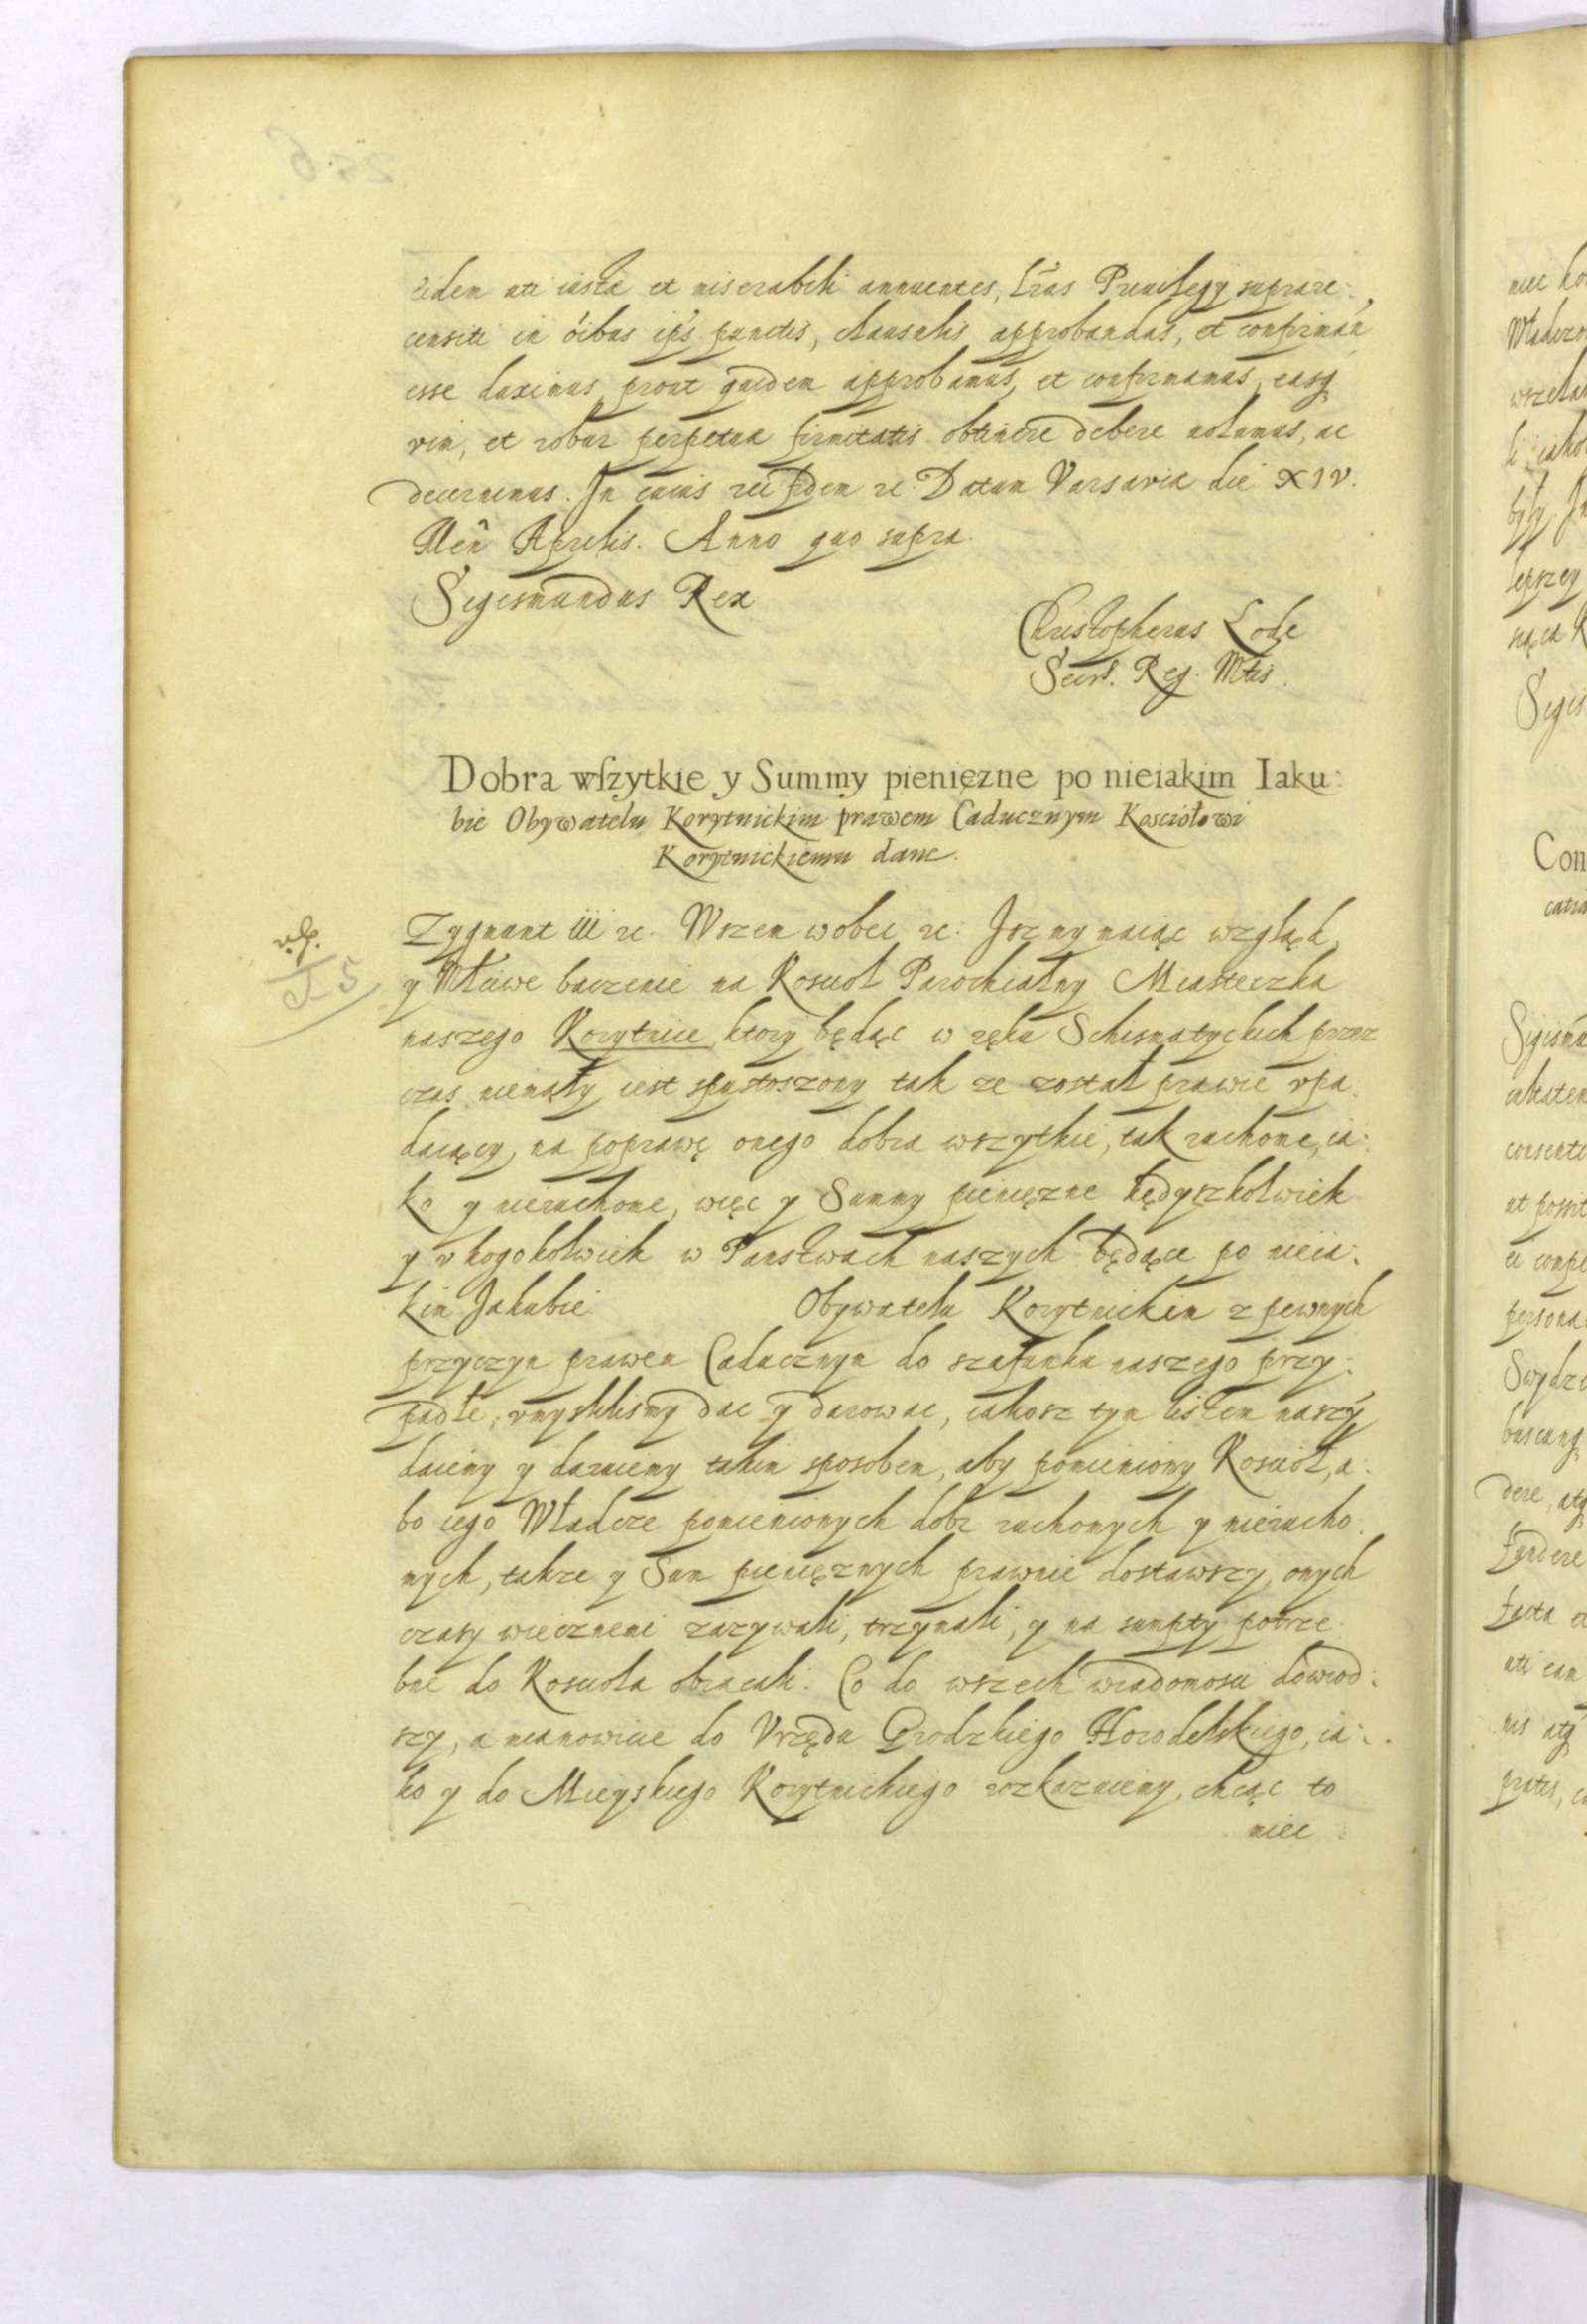 eidem uti iustae et miserabili annuentes, Lras Priuilegÿ suprare:
censiti in oibus ips punctis, clausulis approbandas, et confirman
esse duximus prout quidem approbamus, et confirmamus, easq
vim, et robur perpetuae firmitatis obtinere debere uolumus, ac
decernimus. In cuius rei fidem zc Datum Varsaviae die XIV.
Men Aprilis. Anno quo supra.
Sigismundus Rex
Christopherus Lode
Secrs. Reg. Mtis.
Dobra wſzytkie y Summy pienięzne po nieiakim Iaku:
bie Obywatelu Korytnickim prawem Caducznym Kosciołowi
Korytnickiemu dane.
Zygmunt III zc. Wszem wobec zc: Isz my maiąc wzgląd,
y Młciwe baczenie na Kosciol Parochialny Miasteczka
naszego Korytnice, ktory będąc w ręku Schismatyckich przez
czas niemały iest spustoszony tak ze został prawie vpa
daiący, na poprawę onego dobra wszytkie, tak ruchome, ia:
ko y nieruchome, więc y Summy pienięzne kędyszkolwiek
y v kogokolwiek w Panstwach naszych będące po nieia:
kim Jakubie Obywatelu Korytnickim z pewnych
przyczyn prawem Caducznym do szafunku naszego przy:
padłe, vmyslilismy dac y darowac, iakosz tym listem naszÿ
daiemy y daruiemy takim sposobem, aby pomieniony Kosciół, a:
bo iego Władcze pomienionych dobr ruchomych y nierucho:
mych, takze y Sum pienięznych prawnie dostawszy, onych
czasy wiecznemi zazywali, trzymali, y na sumpty potrze
bne do Kosciola obracali. Co do wszech wiadomosci dowiod:
szy, a mianowicie do Vrzędu Grodzkiego Horodelskiego, ia:
ko y do Mieyskiego Korytnickiego rozkazuiemy, chcąc to
miec